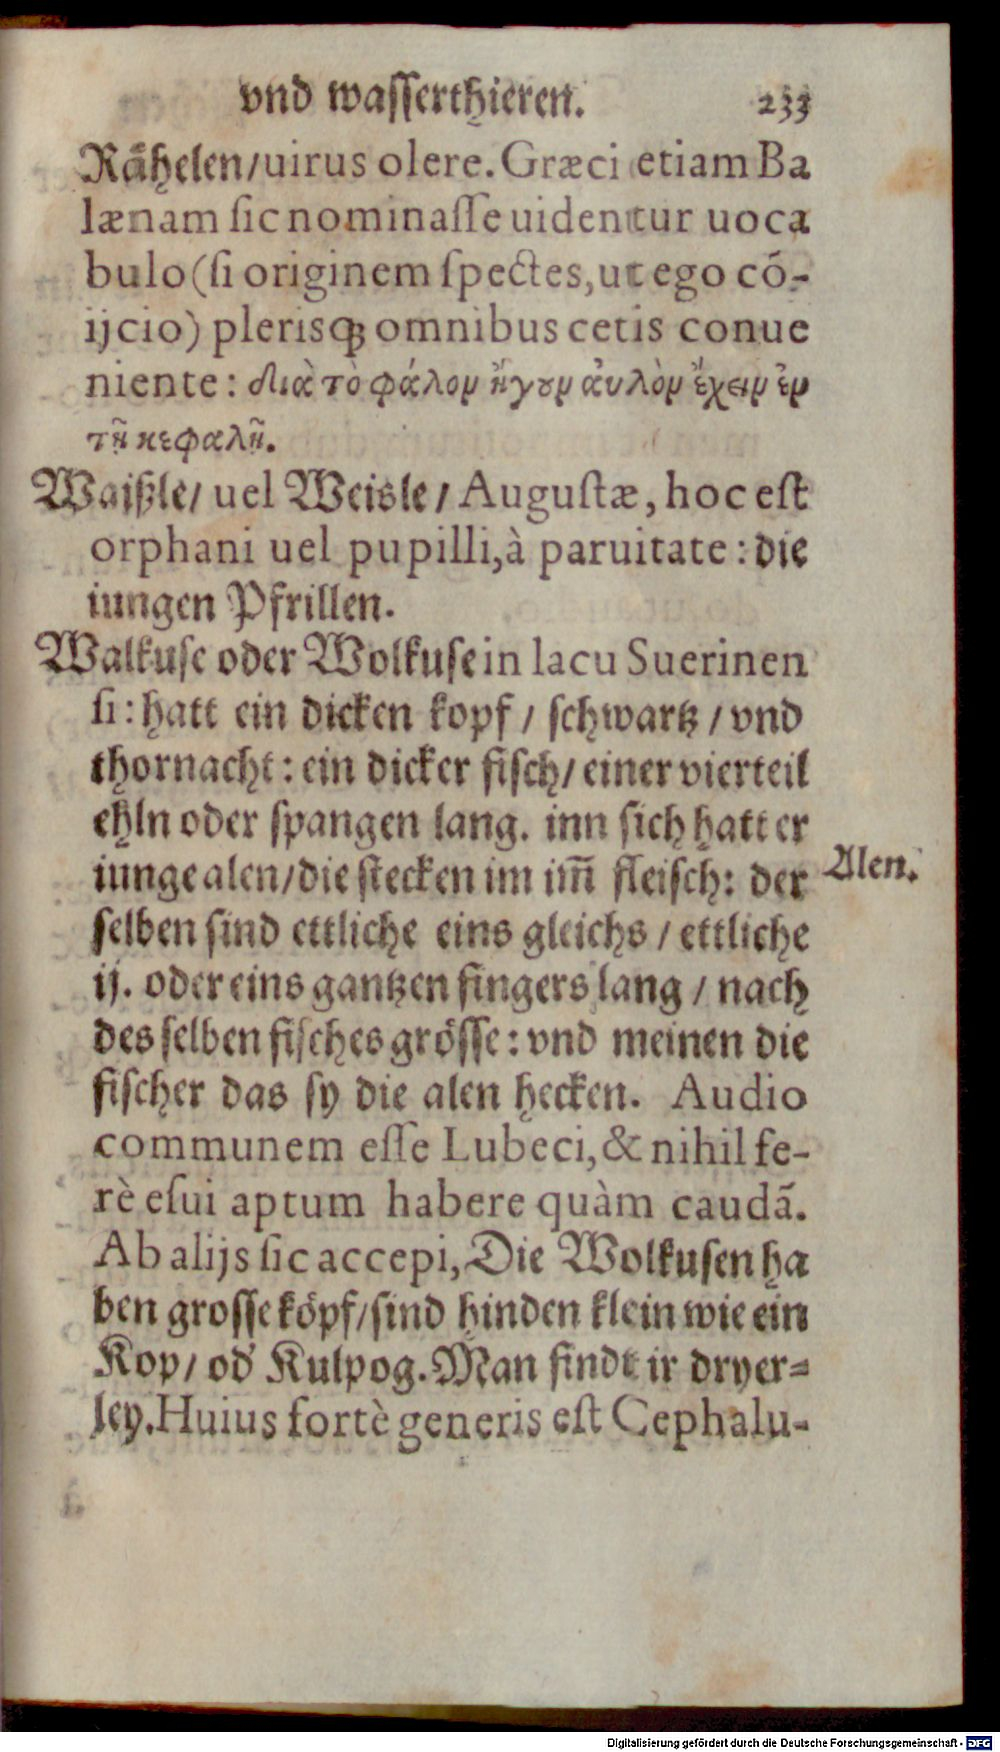 vnd wasserthieren. 233
Rähelen/uirus olere. Græci etiam Ba
lænam sic nominasse uidentur uoca
bulo (si originem spectes, ut ego cō-
ijcio) plerisq; omnibus cetis conue
niente: διὰ τὸ φάλον ἤγουν ἀυλὸν ἔχειν ἐν
τῇ κεφαλῇ.
Waißle/ uel Weisle/ Augustæ, hoc est
orphani uel pupilli, à paruitate: die
iungen Pfrillen.
Walkuse oder Wolkuse in lacu Suerinen
si: hatt ein dicken kopf/ schwartz/ vnd
thornacht: ein dicker fisch/ einer vierteil
ehln oder spangen lang. inn sich hatt er
iunge alen/die stecken im im̄ fleisch: der
Alen.
selben sind ettliche eins gleichs/ ettliche
ij. oder eins gantzen fingers lang/ nach
des selben fisches grösse: vnd meinen die
fischer das sy die alen hecken. Audio
communem esse Lubeci, & nihil fe-
rè esui aptum habere quàm caudā.
Ab alijs sic accepi, Die Wolkusen ha
ben grosse köpf/sind hinden klein wie ein
Kop/ od' Kulpog. Man findt ir dryer-
ley. Huius fortè generis est Cephalu-
Digitalisierung gefördert durch die Deutsche Forschungsgemeinschaft - DFG